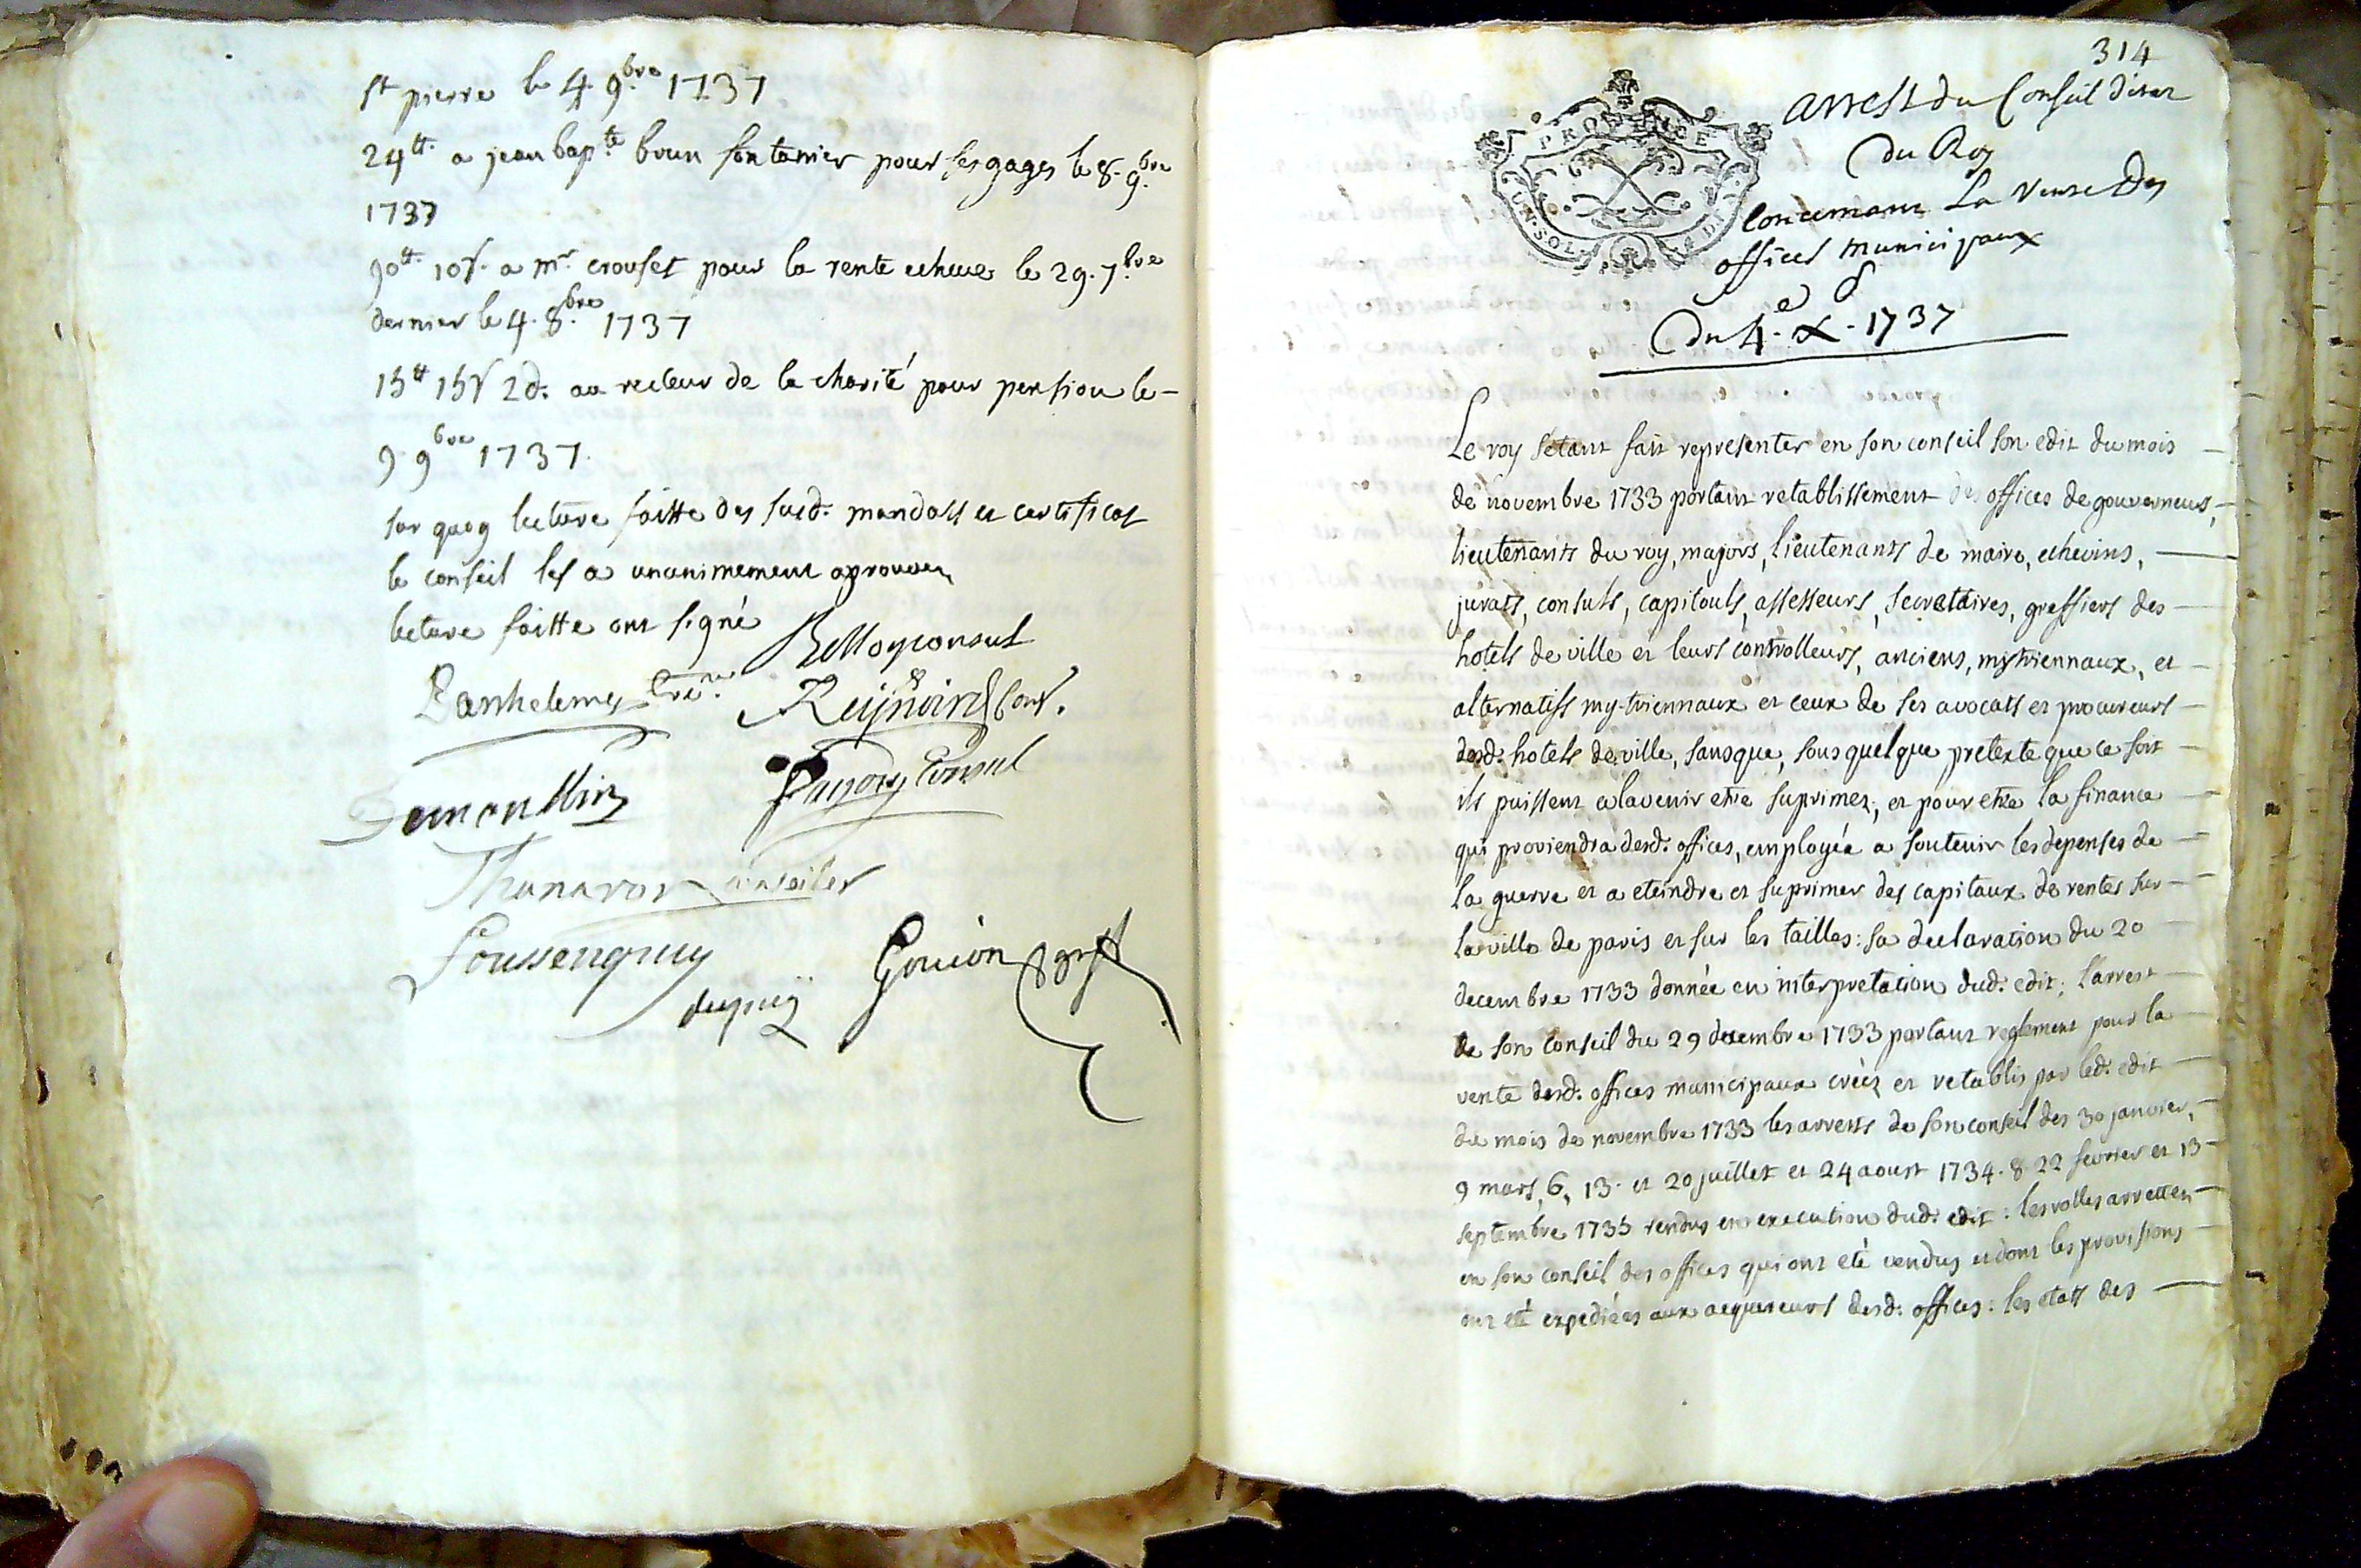 st pierre le 4. 9.bre 1737
24tt. a jean bap.te brun fontanier pour ses gages le 8. 9.bre
1737
90tt. 10s. a mr. crouset pour la rente echue le 29. 7.bre
dernier le 4. 8.bre 1737
15tt 15s 2d. au recteur de la charité pour pension le -
9 9bre 1737.
sur quoy lecture faitte des susd. mandats et certificat
le conseil les a unanimement aprouvez
lecture faitte ont signé
consul
Barthelemy
Reynoird Cons.
consul
conseiller
Foussenquy
dupuy
Gouion greff
314
PROVINCE
UN SOL 4 D
arrest du Conseil d'etat
du Roy
Concernant La Vente Des
offices municipaux
Du 4.e X. 1737
Le roy s'étant fait representer en son conseil son edit du mois
de novembre 1733 portant retablissement des offices de gouverneurs,
lieutenants du roy, majors, lieutenants de maire, echevins,
jurats, consuls, capitouls, assesseurs, secretaires, greffiers des
hotels de ville et leurs controlleurs, anciens, mytriennaux, et
alternatifs my-triennaux et ceux de ses avocats et procureurs
desd. hotels de ville, sans que, sous quelque pretexte que ce soit
ils puissent a lavenir etre suprimez; et pour etre la finance
qui proviendra desd. offices, employée a soutenir les depenses de
la guerre et a eteindre et suprimer des capitaux de rentes sur
la ville de paris et sur les tailles: sa declaration du 20
decembre 1733 donnée en interpretation dud. edit; l'arrest
de son conseil du 29 decembre 1733 portant reglement pour la
vente desd. offices municipaux créés et retablis par led. edit
du mois de novembre 1733 les arrests de son conseil des 30 janvier,
9 mars, 6, 13. et 20 juillet et 24 aoust 1734. 8 22 fevrier et 13
septembre 1735 rendus en execution dud. edit: les rolles arrettez
en son conseil des offices qui ont eté vendus et dont les provisions
ont eté expediées aux acquereurs desd. offices: les etats des